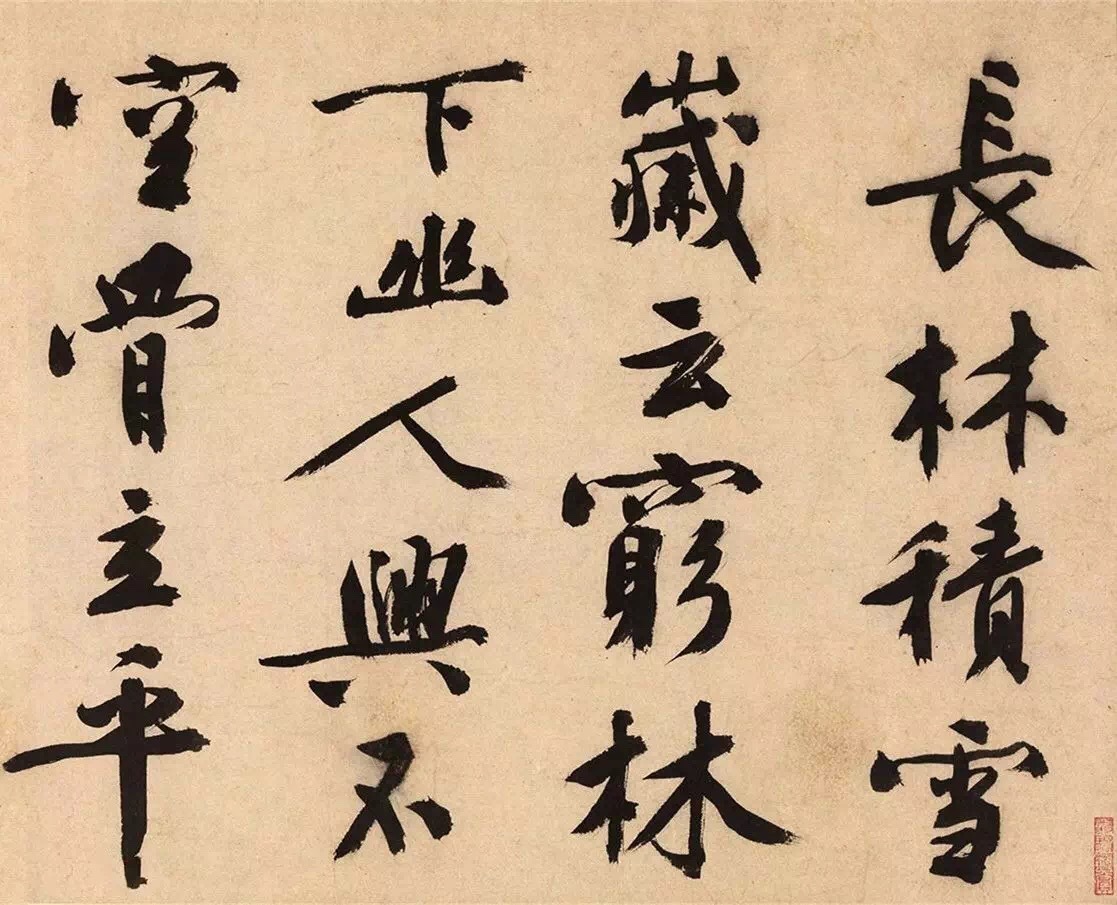 長林積雪
歲云窮林
下幽人興不
空骨立平